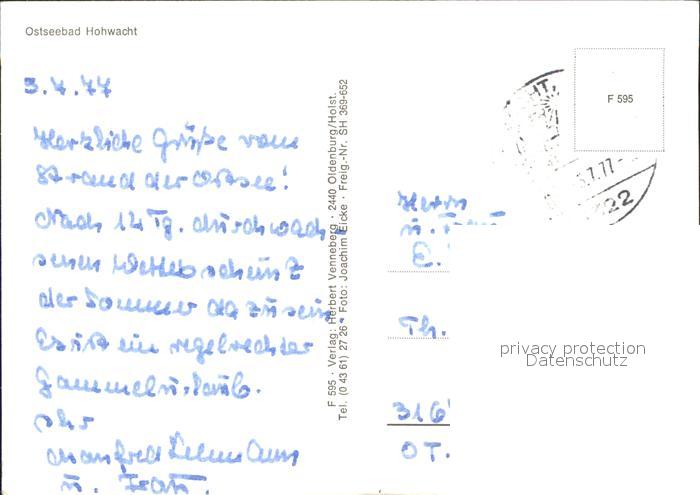 Ostseebad Hohwacht
3.7.77
Herzliche Grüße vom
Strand der Ostsee!
Nach 14 Tg. durchwach-
senem Wetter scheint
der Sommer da zu sein.
Es ist ein regelrechter
Gammelurlaub.
Ihr
Manfred
u. Frau.
F 595 · Verlag: Herbert Venneberg · 2440 Oldenburg/Holst.
Tel. (0 43 61) 27 26 · Foto: Joachim Eicke · Freig.-Nr. SH 369-652
F 595
.7.77-
22
Herrn
u. Frau
E.
Th.
316
OT.
privacy protection
Datenschutz